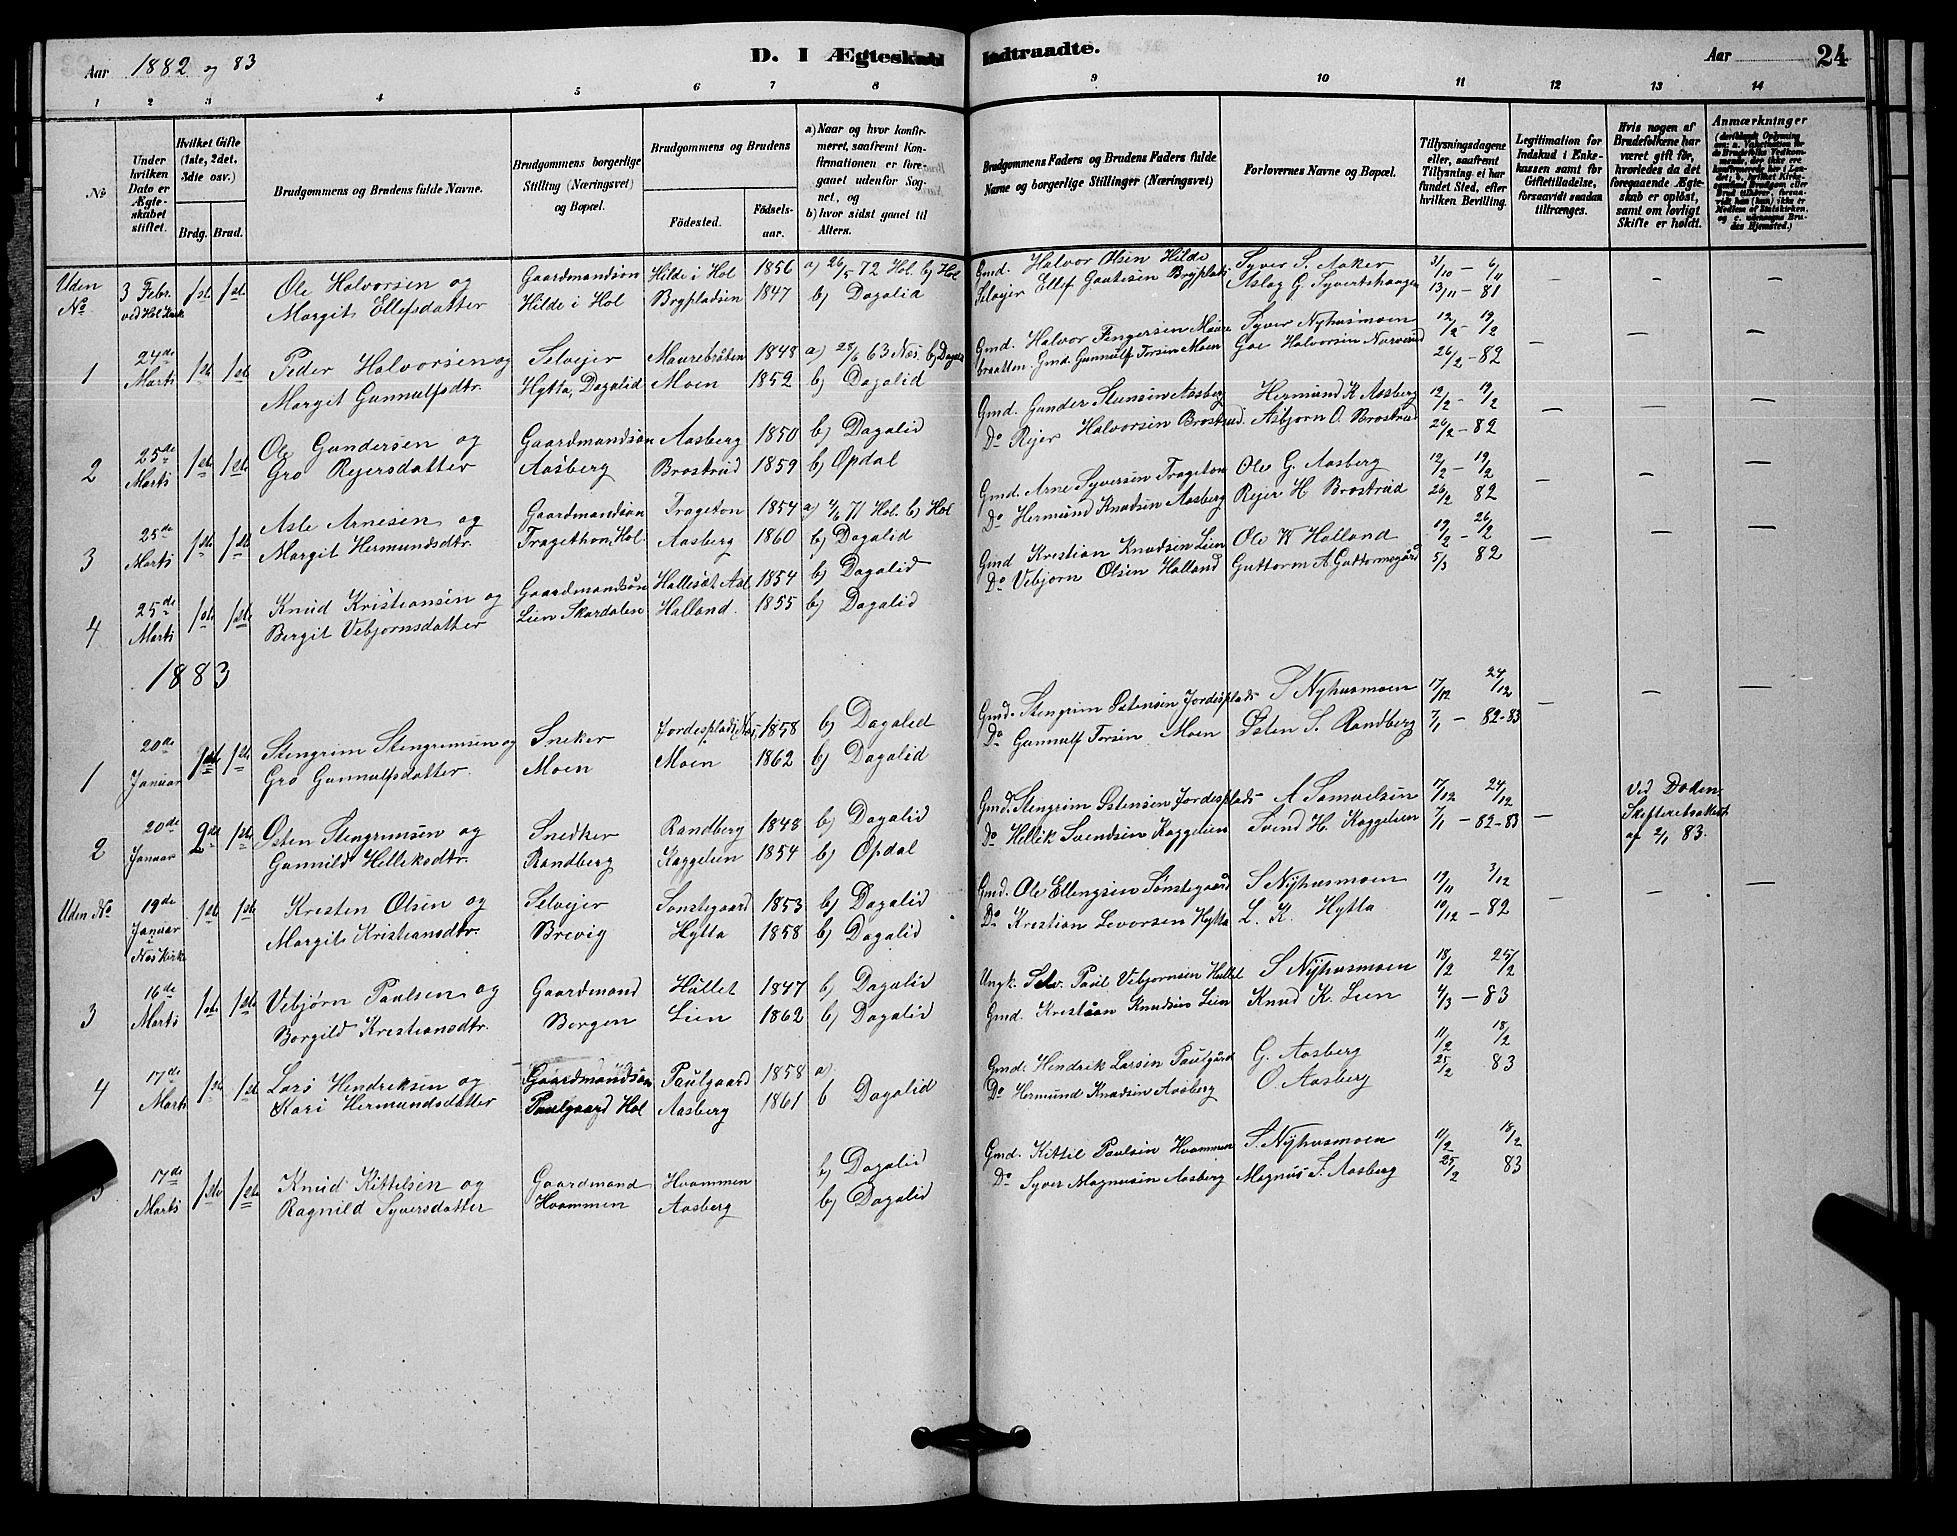 Aar 1882 og 83
D. I Ægteskab Indtraadte.
Aar 24
1 2 3 4 5 6 7 8 9 10 11 12 13 14
No
Under hvilken Dato er Ægteskabet stiftet.
Hvilket Gifte (1ste, 2det, 3die osv.)
Brdg. Brud.
Brudgommens og Brudens fulde Navne.
Brudgommens borgerlige Stilling (Næringsvei) og Bopæl.
Brudgommens og Brudens
Födested. Födsels-aar.
a) Naar og hvor konfirmeret, saafremt Konfirmationen er foregaaet udenfor Sognet, og
b) hvor sidst gaaet til Alters.
Brudgommens Faders og Brudens Faders fulde Navne og borgerlige Stillinger (Næringsvei)
Forlovernes Navne og Bopæl.
Tillysningsdagene eller, saafremt Tillysning ei har fundet Sted, efter hvilken Bevilling.
Legitimation for Indskud i Enkekassen samt for Giftetilladelse, forsaavidt saadan tiltrænges.
Hvis nogen af Brudefolkene har været gift för, hvorledes da det foregaaende Ægteskab er oplöst, samt om lovligt Skifte er holdt.
Anmærkninger
Uden No 3 Febr. ved Hol Kirk 1ste 1ste
Ole Halvorsen og Gaardmandsøn Hilde i Hol 1856 a) 26/5 72 Hol b) Hol Gmd. Halvor Olsen Hilde Syver S. Aaker 31/10 – 6/11
Margit Ellefsdatter Hilde i Hol Brypladsen 1847 b) Dagalid Selvejer Ellef Gautesen Bryplads Aslag G. Syvertshaugen 13/11 – 81
1 24de Marts 1ste 1ste
Peder Halvorsen og Selvejer Maurebråten 1848 a) 28/6 63 Nes. b) Dagalid Gmd. Halvor Fingersen Maure- Syver Nyhusmoen 12/2 – 19/2
Margit Gunnulfsdtr. Hytta, Dagalid Moen 1852 b) Dagalid braatten. Gmd. Gunnulf Torsen Moen Goe Halvorsen Nørvend 26/2 – 82
2 25de Marts 1ste 1ste
Ole Gundersen og Gaardmandsøn Aasberg 1850 b) Dagalid Gmd. Gunder Stensen Aasberg Hermund K Aasberg 12/2 – 19/2
Gro Rejersdatter Aasberg Brostrud 1859 b) Opdal Do Rejer Halvorsen Brostrud Asbjørn O. Brostrud 26/2 – 82
3 25de Marts 1ste 1ste
Asle Arnesen og Gaardmandsøn Trageton 1854 a) 4/6 71 Hol b) Hol Gmd. Arne Syversen Trageton Ole G. Aasberg 12/2 – 19/2
Margit Hermundsdtr. Tragethon, Hol. Aasberg 1860 b) Dagalid Do Hermund Knudsen Aasberg Rejer H Brostrud 26/2 82
4 25de Marts 1ste 1ste
Knud Kristiansen og Gaardmandsøn Hallesæt Aal 1854 b) Dagalid Gmd Krestian Knudsen Lien Ole V Halland 19/2 – 26/2
Bergit Vebjørnsdatter Lien Skurdalen Halland. 1855 b) Dagalid Do Vebjørn Olsen Halland Guttorm A Guttormsgård 5/3 82
1883
1 20de Januar 1ste 1ste
Stengrim Stengrimsen og Sneker Jordesplads, Nes 1858 b) Dagalid Gmd. Stengrim Østensen Jordesplads S Nyhusmoen 17/12 24/12
Gro Gunnulfsdatter. Moen Moen 1862 b) Dagalid Do Gunnulf Torsen Moen Østen S. Randberg 7/1 – 82-83
2 20de Januar 2de 1ste
Østen Stengrimsen og Snedker Randberg 1848 b) Dagalid Gmd. Stengrim Østensen Jordesplads A Samuelsen 17/12 24/12 Ved Døden
Gunnild Helleksdtr. Randberg Kaggelien 1854 b) Opdal Do Hellik Svendsen Kaggelien Svend H. Kaggelien 7/1 – 82-83 Skifteretsattest af 2/1 83.
Uden No 19de Januar i Nes Kirk 1ste 1ste
Kresten Olsen og Selvejer Sønstegaard 1853 b) Dagalid Gmd. Ole Ellengsen Sønstegaard S Nyhusmoen 19/11 3/12
Margit Kristiansdtr. Brevig Hytta 1858 b) Dagalid Do Krestian Levorsen Hytta L. K. Hytta 10/12 – 82
3 16de Marts 1ste 1ste
Vebjørn Paulsen og Gaardmand Hullet 1847 b) Dagalid Ungk. Selv. Paul Vebjørnsen Hullet S Nyhusmoen 18/2 25/2
Borgild Krestiansdtr. Borgen Lien 1862 b) Dagalid Gmd. Krestian Knudsen Lien Knud K. Lien 4/3 – 83
4 17de Marts 1ste 1ste
Lars Hendriksen og Gaardmandsøn Paulgaard 1858 a) Gmd. Hendrik Larsen Paulgård G. Aasberg 11/2 18/2
Kari Hermundsdatter Paulgaard Hol Aasberg 1861 b Dagalid Do Hermund Knudsen Aasberg O. Aasberg 25/2 83
5 17de Marts 1ste 1ste
Knud Kittelsen og Gaardmand Hvammen b) Dagalid Gmd. Kittil Paulsen Hvammen S. Nyhusmoen 11/2 18/2
Ragnild Syversdatter Hvammen Aasberg b) Dagalid Do Syver Magnusen Aasberg Magnus S. Aasberg 25/2 83